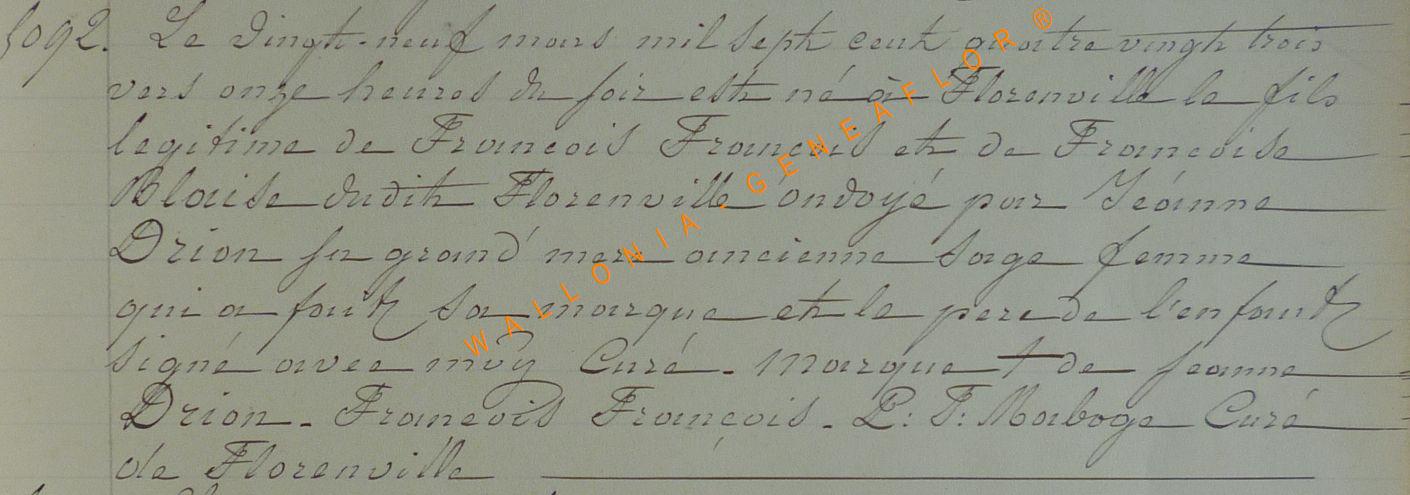 5092. Le vingt-neuf mars mil sept cent quatre vingt trois
vers onze heures du soir est né à Florenville le fils
legitime de Francois Francois et de Francoise
Blaise dudit Florenville ondoyé par Jéanne
Drion sa grand' mere ancienne sage femme
qui a fait sa marque et le pere de l'enfant
signé avec moÿ Curé - Marque † de jeanne
Drion - François François - P: F: Maboge Curé
de Florenville
WALLONIA - GENEAFLOR®